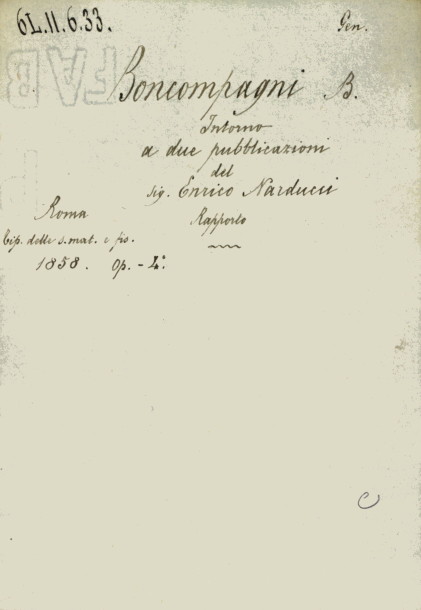 6L.11.6.33. Gen.
FAB
Boncompagni B.
Intorno
a due pubblicazioni
del
sig. Enrico Narducci
Roma Rapporto
Tip. delle s. mat. e fis.
1858. Op. - 4°.
C